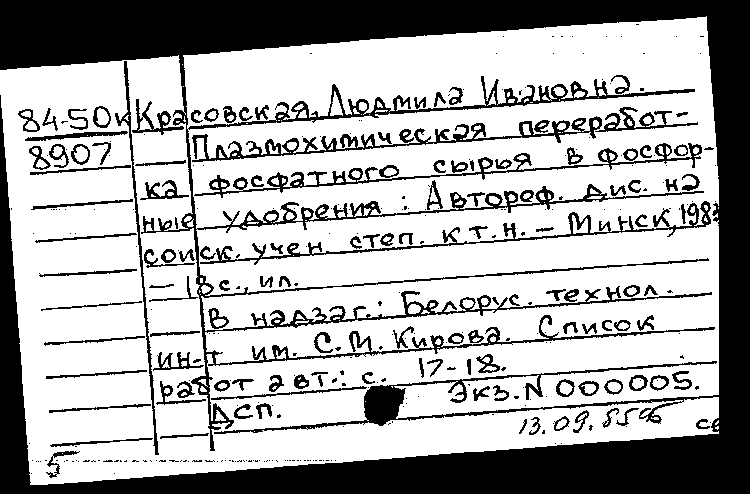 84-50к Красовская, Людмила Ивановна.
8907 Плазмохимическая переработ-
ка фосфатного сырья в фосфор-
ные удобрения : Автореф. дис. на
соиск. учен. степ. к.т.н. – Минск, 1983
– 18 с., ил.
В надзаг.: Белорус. технол.
ин-т им. С.М. Кирова. Список
работ авт.: с. 17-18.
ДСП. Экз. N 000005.
13.09.85
5